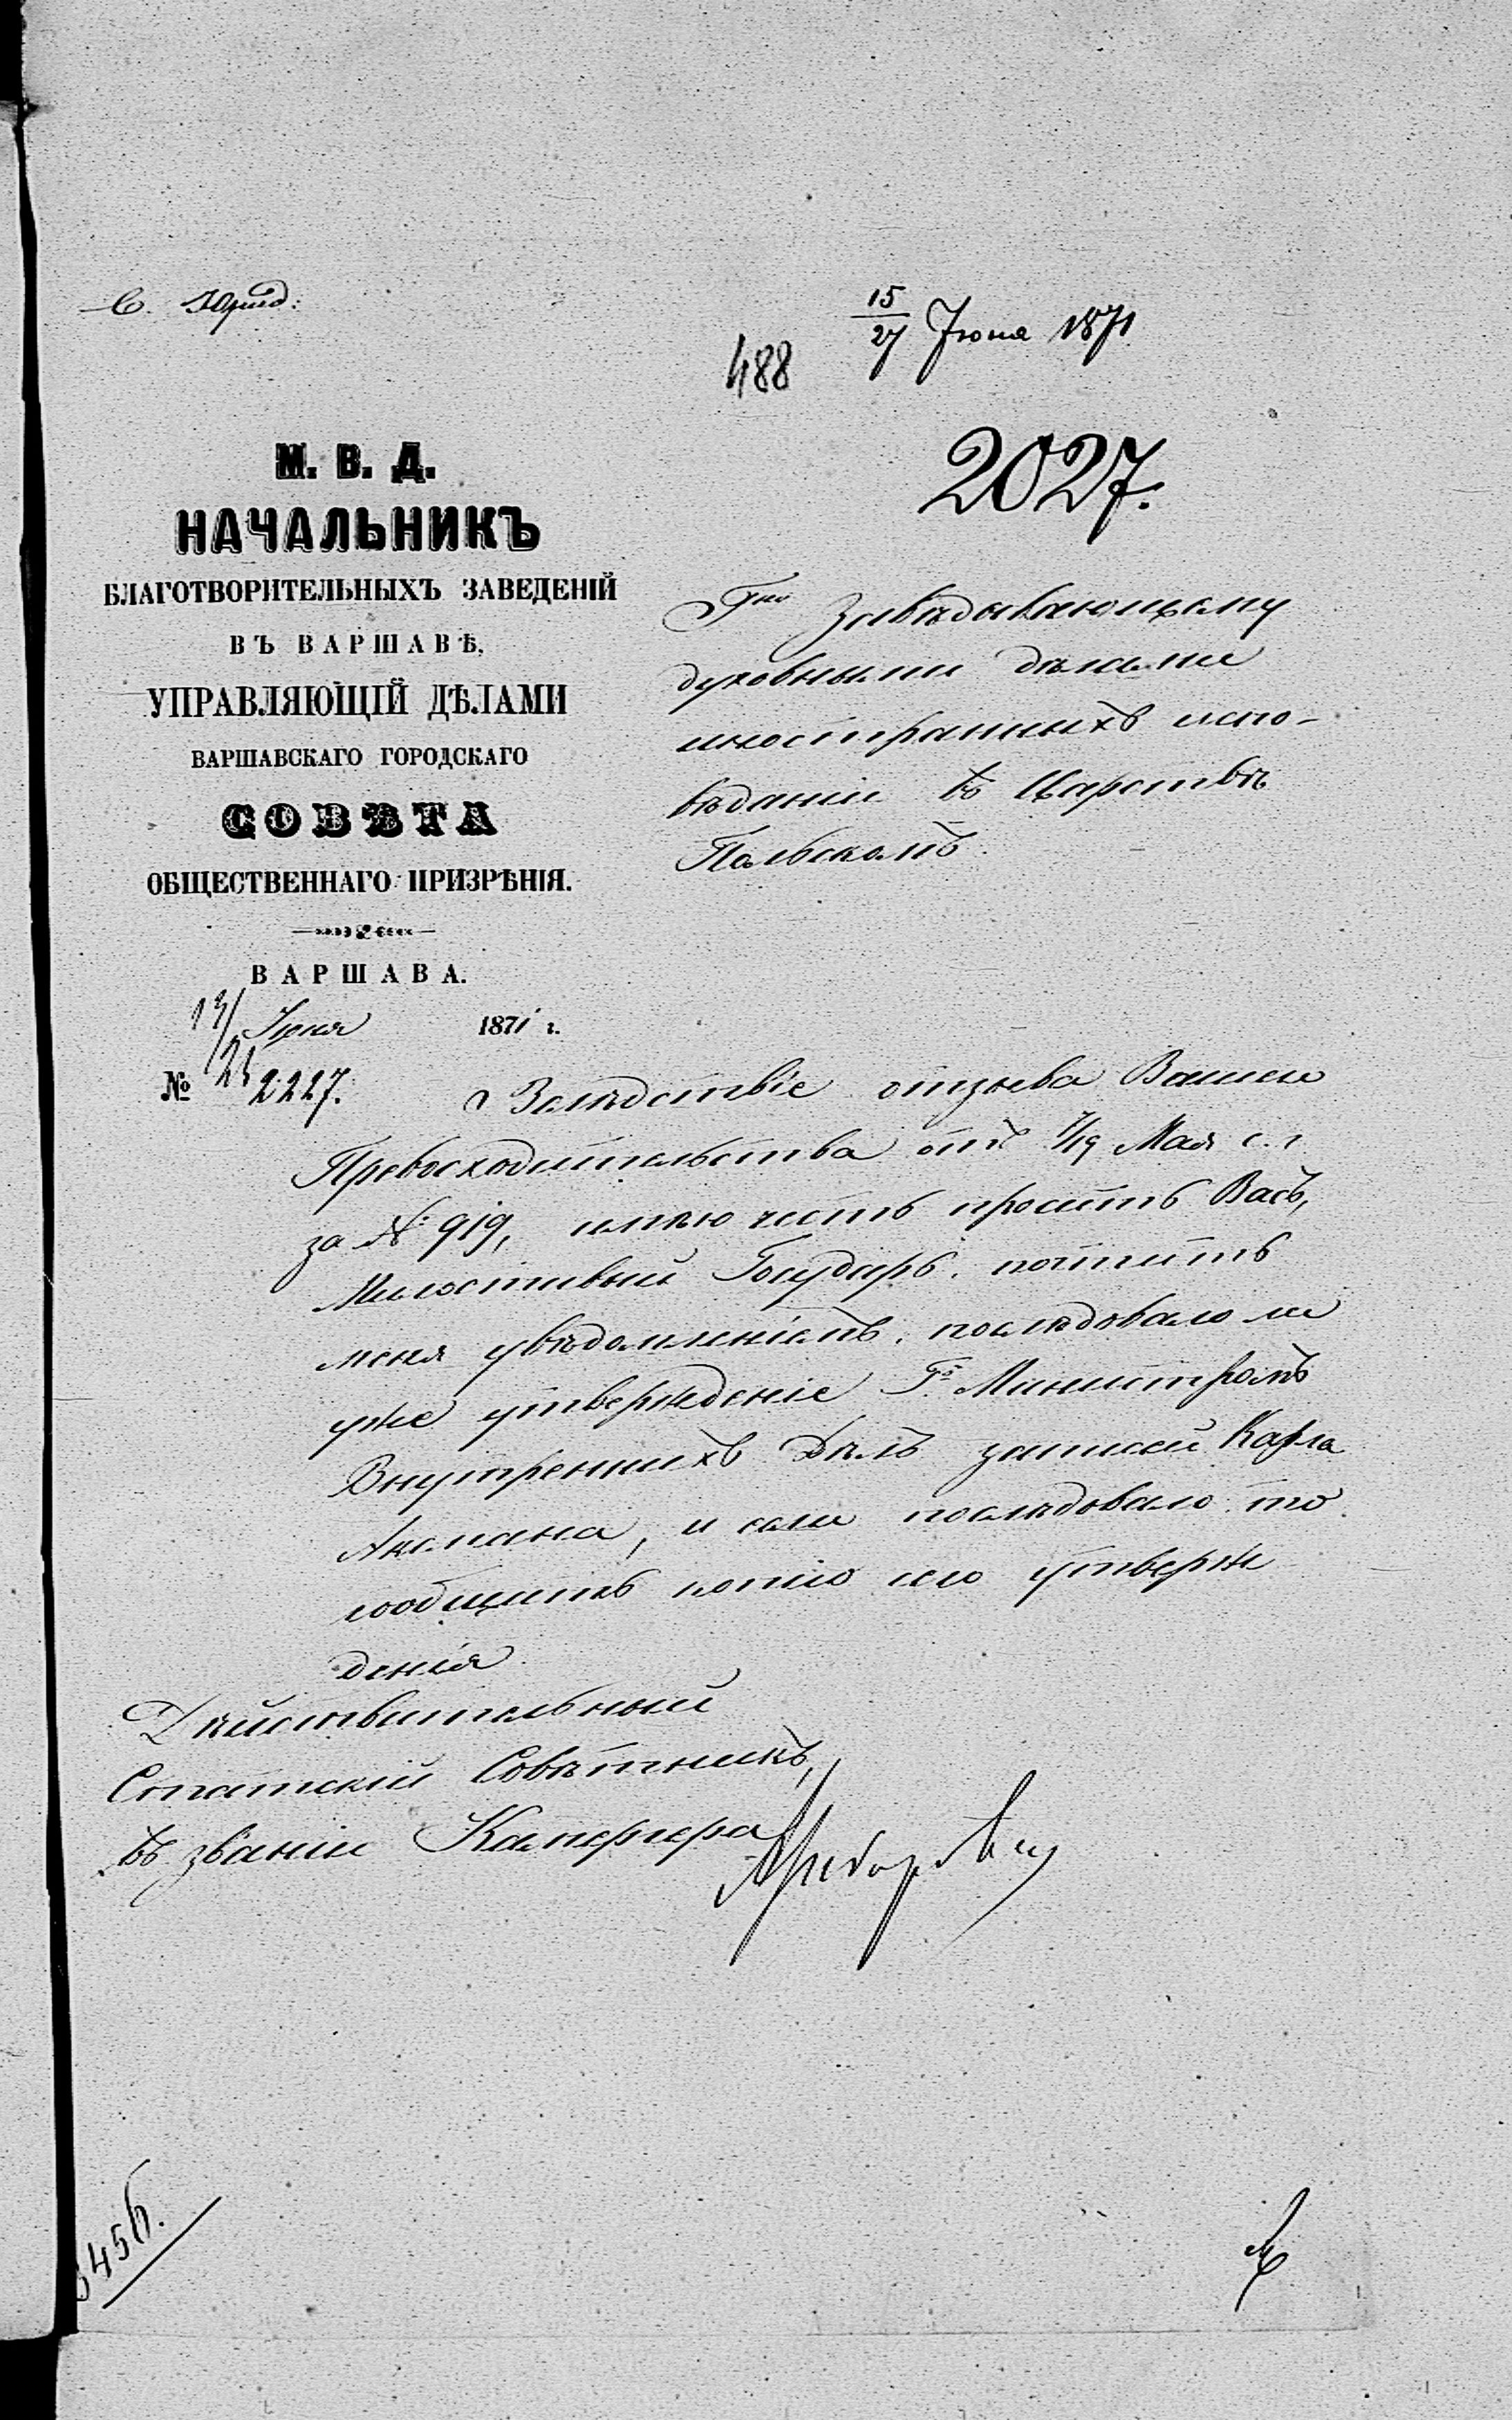 С. Юрид:
15/27 Іюня 1871
488
2027.
М. В. Д.
НАЧАЛЬНИКЪ
БЛАГОТВОРИТЕЛЬНЫХЪ ЗАВЕДЕНІЙ
ВЪ ВАРШАВѢ,
УПРАВЛЯЮЩІЙ ДѢЛАМИ
ВАРШАВСКАГО ГОРОДСКАГО
СОВѢТА
ОБЩЕСТВЕННАГО ПРИЗРѢНІЯ.
ВАРШАВА.
Іюня 1871 г.
№ 2227.
Гну Завѣдывающему
духовными дѣлами
иностранныхъ испо-
вѣданій въ Царствѣ
Польскомъ.
Вслѣдствіе отзыва Вашего
Превосходительства отъ 7/19 Мая с. г
за № 919, имѣю честь просить Васъ,
Милостивый Государь, почтить
меня увѣдомленіемъ, послѣдовало ли
уже утвержденіе Гº Министромъ
Внутреннихъ Дѣлъ записи Карла
и если послѣдовало то
сообщить копію сего утверж
денія
Дѣйствительный
Статскій Совѣтникъ,
въ званіи Камергера
3456.